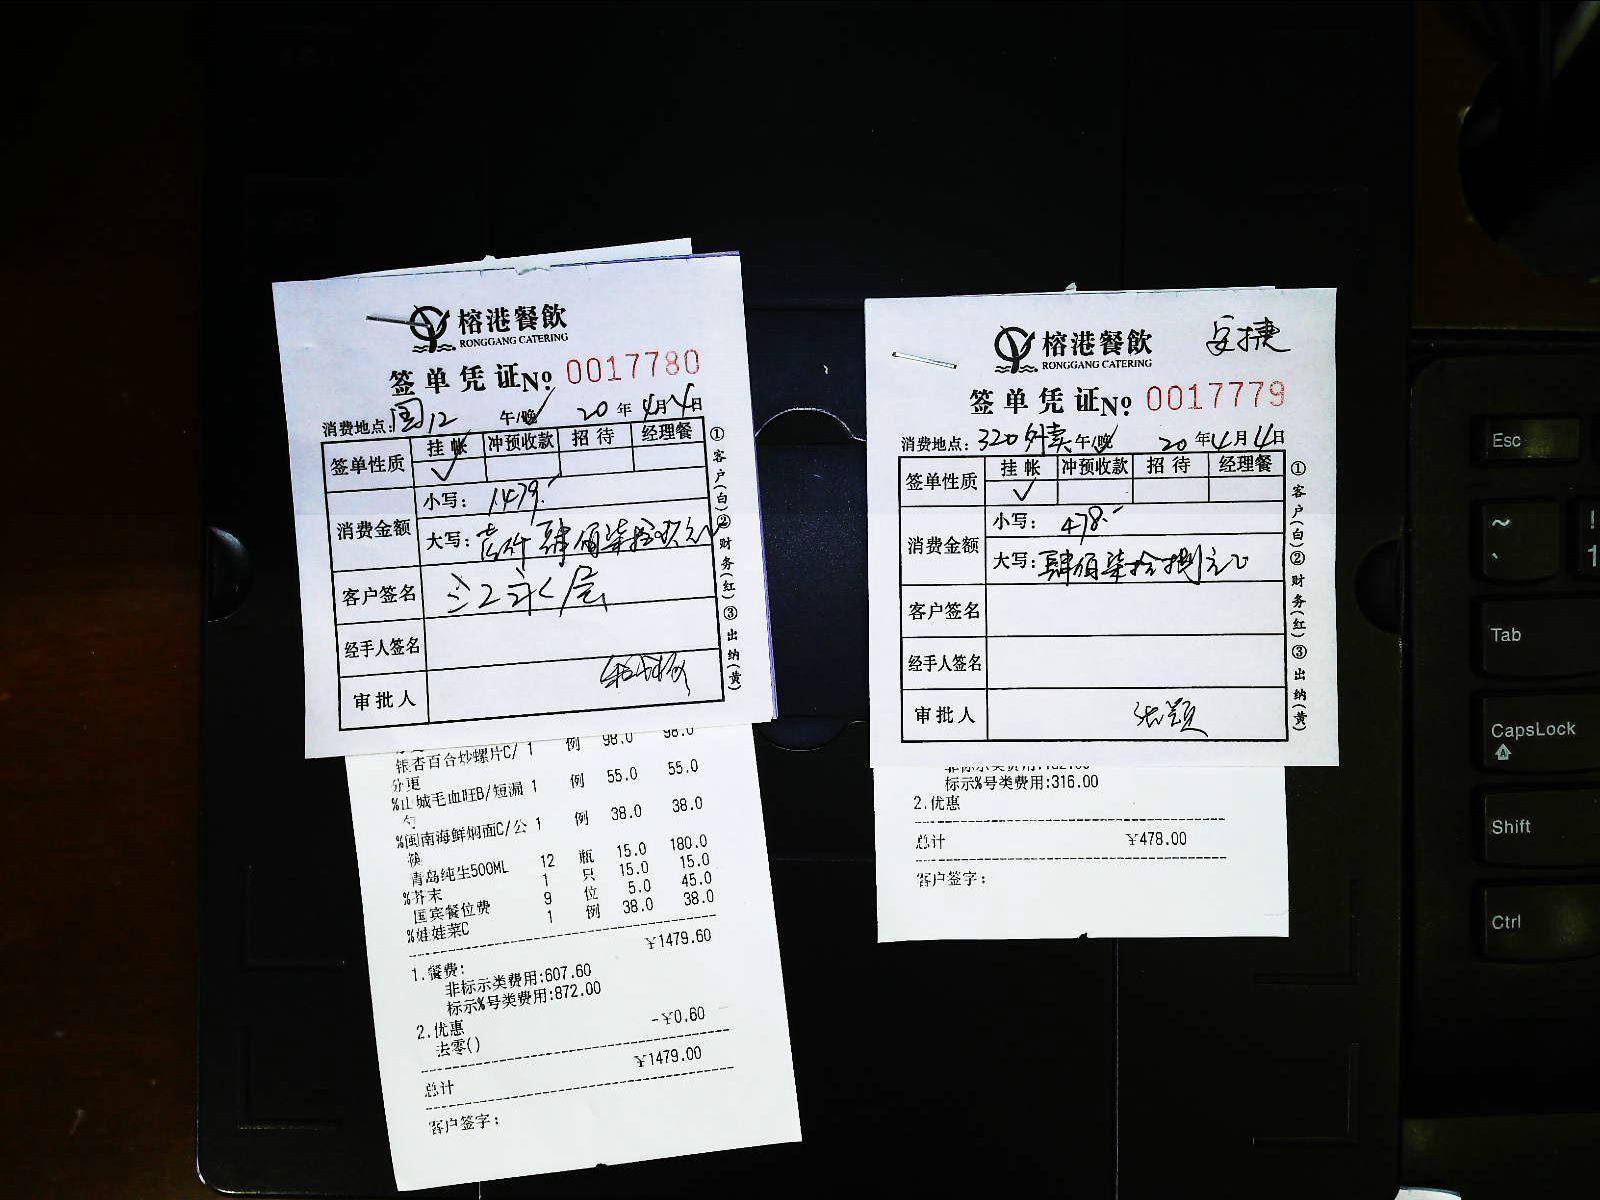 榕港餐飲
RONGGANG CATERING
签单凭证No 0017780
消费地点:国12 午/晚 20年4月4日
签单性质 挂帐 冲预收款 招待 经理餐
✓
消费金额 小写: 1479.-
大写: 壹仟肆佰柒拾玖元
客户签名
经手人签名
审批人
①客户(白)②财务(红)③出纳(黄)
银杏百合炒螺片C/ 1 例 98.0 98.0
分更
%山城毛血旺B/短漏 1 例 55.0 55.0
勺
%闽南海鲜焖面C/公 1 例 38.0 38.0
筷
青岛纯生500ML 12 瓶 15.0 180.0
%芥末 1 只 15.0 15.0
国宾餐位费 9 位 5.0 45.0
%娃娃菜C 1 例 38.0 38.0
¥1479.60
1.餐费:
非标示类费用:607.60
标示%号类费用:872.00
2.优惠 -¥0.60
去零()
¥1479.00
总计
客户签字:
榕港餐飲
RONGGANG CATERING
安捷
签单凭证No 0017779
消费地点:320外卖 午/晚 20年4月4日
签单性质 挂帐 冲预收款 招待 经理餐
✓
消费金额 小写: 478.-
大写:肆佰柒拾捌元
客户签名
经手人签名
审批人 张颖
①客户(白)②财务(红)③出纳(黄)
标示%号类费用:316.00
2.优惠
总计 ¥478.00
客户签字:
Esc
~
`
!
1
Tab
CapsLock
A
Shift
Ctrl